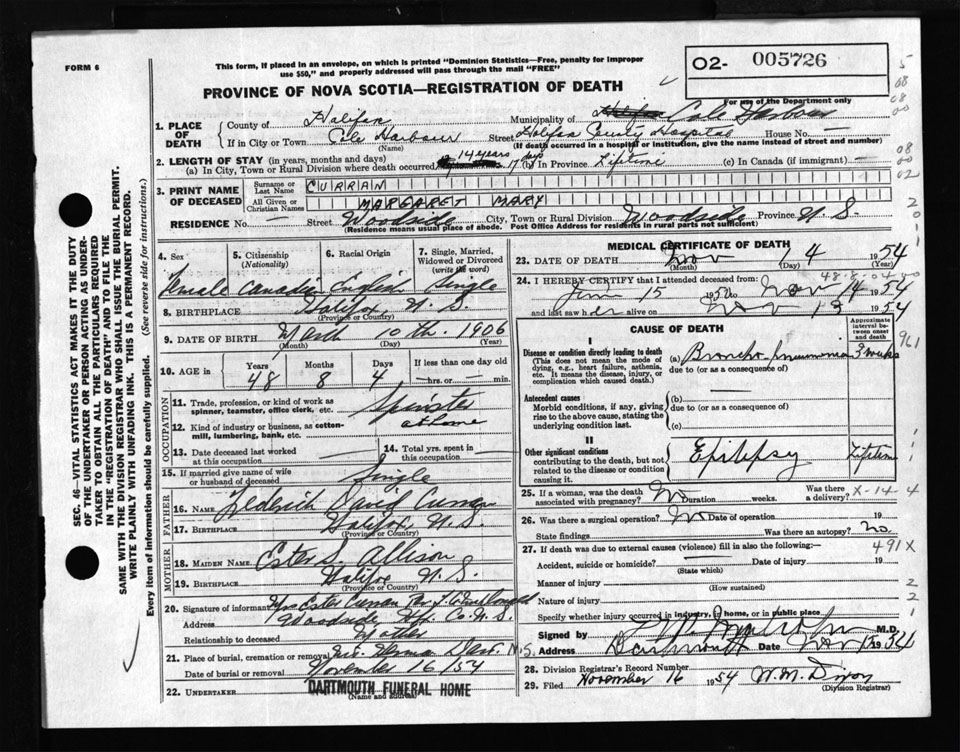 FORM 6
This form, if placed in an envelope, on which is printed "Dominion Statistics—Free, penalty for improper
use $50," and properly addressed will pass through the mail "FREE"
O2- 005726
PROVINCE OF NOVA SCOTIA—REGISTRATION OF DEATH
For use of the Department only
1. PLACE OF DEATH
County of Halifax
Municipality of Halifax Cole Harbour
If in City or Town Cole Harbour Street Halifax County Hospital House No. —
(Name) (If death occurred in a hospital or institution, give the name instead of street and number)
2. LENGTH OF STAY (in years, months and days)
(a) In City, Town or Rural Division where death occurred 14 years 17 days (b) In Province Lifetime (c) In Canada (if immigrant) —
3. PRINT NAME OF DECEASED
Surname or Last Name CURRAN
All Given or Christian Names MARGARET MARY
RESIDENCE No. — Street Woodside City, Town or Rural Division Woodside Province N.S.
(Residence means usual place of abode. Post Office Address for residents in rural parts not sufficient)
4. Sex
Female
5. Citizenship (Nationality)
Canadian
6. Racial Origin
English
7. Single, Married, Widowed or Divorced (write the word)
Single
8. BIRTHPLACE Halifax N.S.
(Province or Country)
9. DATE OF BIRTH March 10th. 1906
(Month) (Day) (Year)
10. AGE in Years 48 Months 8 Days 4 If less than one day old —hrs. or —min.
OCCUPATION
11. Trade, profession, or kind of work as spinner, teamster, office clerk, etc. Spinster
12. Kind of industry or business, as cotton-mill, lumbering, bank, etc. at home
13. Date deceased last worked at this occupation —
14. Total yrs. spent in this occupation —
15. If married give name of wife or husband of deceased Single
FATHER
16. NAME Frederick David Curran
17. BIRTHPLACE Halifax N.S.
(Province or Country)
MOTHER
18. MAIDEN NAME Ester S. Allison
19. BIRTHPLACE Halifax N.S.
(Province or Country)
20. Signature of informant Mrs Ester Curran
Address Woodside Hfx. Co. N.S.
Relationship to deceased Mother
21. Place of burial, cremation or removal Dart. N.S.
Date of burial or removal November 16/54
22. UNDERTAKER DARTMOUTH FUNERAL HOME
(Name and address)
MEDICAL CERTIFICATE OF DEATH
23. DATE OF DEATH Nov 14 1954
(Month) (Day) (Year)
24. I HEREBY CERTIFY that I attended deceased from
48-8-04
15 195 to Nov 14 1954
and last saw her alive on Nov 13 1954
CAUSE OF DEATH
Approximate interval between onset and death
I
Disease or condition directly leading to death
(This does not mean the mode of dying, e.g., heart failure, asthenia, etc. It means the disease, injury, or complication which caused death.)
(a) Broncho pneumonia 3 weeks
due to (or as a consequence of)
Antecedent causes
Morbid conditions, if any, giving rise to the above cause, stating the underlying condition last.
(b)
due to (or as a consequence of)
(c)
II
Other significant conditions contributing to the death, but not related to the disease or condition causing it.
Epilepsy Lifetime
25. If a woman, was the death associated with pregnancy? No Duration weeks. Was there a delivery? X-14-4
26. Was there a surgical operation? No Date of operation 19
State findings Was there an autopsy? no
27. If death was due to external causes (violence) fill in also the following:— 491X
Accident, suicide or homicide? Date of injury 19
(State which)
Manner of injury
(How sustained)
Nature of injury
Specify whether injury occurred in industry, in home, or in public place
Signed by M.D.
Address Dartmouth Date Nov 15 1954
28. Division Registrar's Record Number
29. Filed November 16 1954 W.M. Dixon
(Division Registrar)
SEC. 46—VITAL STATISTICS ACT MAKES IT THE DUTY
OF THE UNDERTAKER OR PERSON ACTING AS UNDER-
TAKER TO OBTAIN ALL THE PARTICULARS REQUIRED
IN THE "REGISTRATION OF DEATH" AND TO FILE THE
SAME WITH THE DIVISION REGISTRAR WHO SHALL ISSUE THE BURIAL PERMIT.
WRITE PLAINLY WITH UNFADING INK. THIS IS A PERMANENT RECORD.
Every item of information should be carefully supplied. (See reverse side for instructions.)
5
08
08
00
08
00
02
961